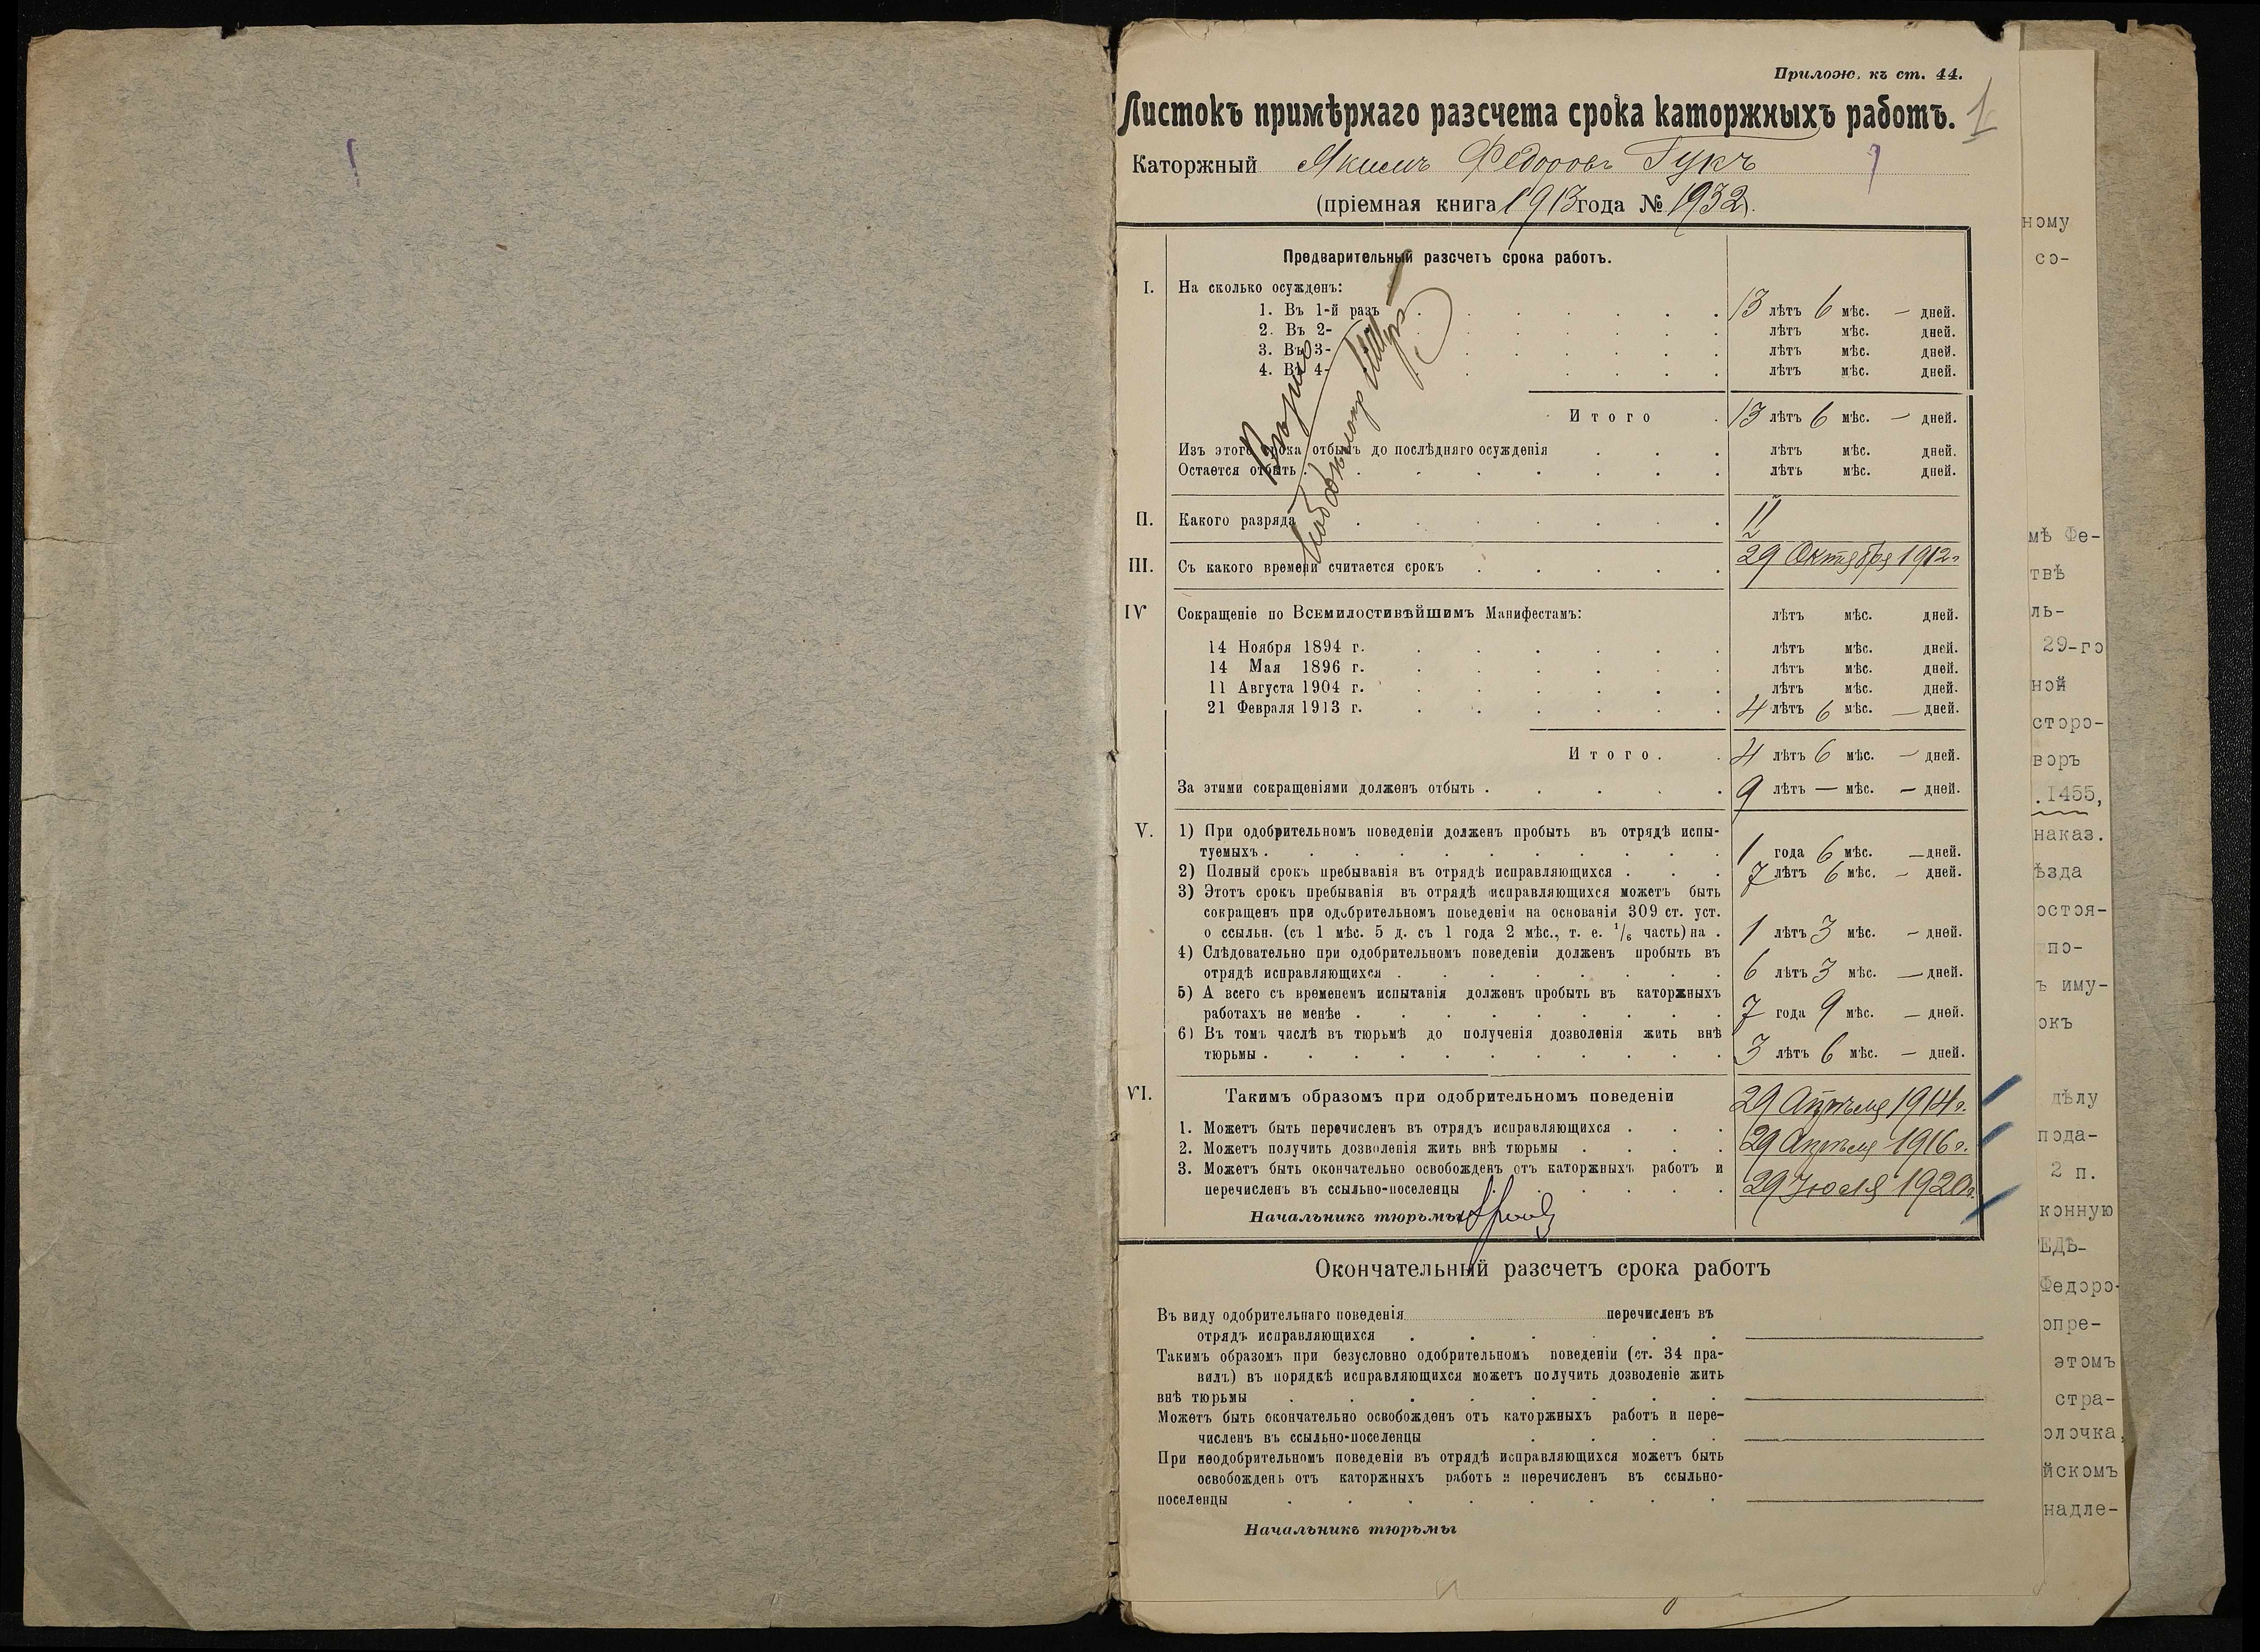 Прилож. къ ст. 44.
Листокъ примѣрнаго разсчета срока каторжныхъ работъ. 1
Каторжный Якимъ Федоровъ Гукъ
(пріемная книга 1913 года № 1932).
Предварительный разсчетъ срока работъ.
I. На сколько осужденъ:
1. Въ 1-й разъ 13 лѣтъ 6 мѣс. — дней.
2. Въ 2- лѣтъ мѣс. дней.
3. Въ 3- лѣтъ мѣс. дней.
4. Въ 4- лѣтъ мѣс. дней.
Итого 13 лѣтъ 6 мѣс. — дней.
Изъ этого срока отбылъ до послѣдняго осужденія лѣтъ мѣс. дней.
Остается отбыть лѣтъ мѣс. дней.
Вѣрно
II. Какого разряда II
III. Съ какого времени считается срокъ 29 Октября 1912 г.
IV Сокращеніе по Всемилостивѣйшимъ Манифестамъ: лѣтъ мѣс. дней.
14 Ноября 1894 г. лѣтъ мѣс. дней.
14 Мая 1896 г. лѣтъ мѣс. дней.
11 Августа 1904 г. лѣтъ мѣс. дней.
21 Февраля 1913 г. 4 лѣтъ 6 мѣс. — дней.
Итого. 4 лѣтъ 6 мѣс. — дней.
За этими сокращеніями долженъ отбыть 9 лѣтъ — мѣс. — дней.
V. 1) При одобрительномъ поведеніи долженъ пробыть въ отрядѣ испы-
туемыхъ. 1 года 6 мѣс. — дней.
2) Полный срокъ пребыванія въ отрядѣ исправляющихся 7 лѣтъ 6 мѣс. — дней.
3) Этотъ срокъ пребыванія въ отрядѣ исправляющихся можетъ быть
сокращенъ при одобрительномъ поведеніи на основаніи 309 ст. уст.
о ссыльн. (съ 1 мѣс. 5 д. съ 1 года 2 мѣс., т. е. 1/6 часть) на 1 лѣтъ 3 мѣс. — дней.
4) Слѣдовательно при одобрительномъ поведеніи долженъ пробыть въ
отрядѣ исправляющихся 6 лѣтъ 3 мѣс. — дней.
5) А всего съ временемъ испытанія долженъ пробыть въ каторжныхъ
работахъ не менѣе 7 года 9 мѣс. — дней.
6) Въ томъ числѣ въ тюрьмѣ до полученія дозволенія жить внѣ
тюрьмы 3 лѣтъ 6 мѣс. — дней.
VI. Такимъ образомъ при одобрительномъ поведеніи
1. Можетъ быть перечисленъ въ отрядъ исправляющихся 29 Апрѣля 1914 г.
2. Можетъ получить дозволенія жить внѣ тюрьмы 29 Апрѣля 1916 г.
3. Можетъ быть окончательно освобожденъ отъ каторжныхъ работъ и
перечисленъ въ ссыльно-поселенцы 29 Іюля 1920 г.
Начальникъ тюрьмы
Окончательный разсчетъ срока работъ
Въ виду одобрительнаго поведенія перечисленъ въ
отрядъ исправляющихся
Такимъ образомъ при безусловно одобрительномъ поведеніи (ст. 34 пра-
вилъ) въ порядкѣ исправляющихся можетъ получить дозволеніе жить
внѣ тюрьмы
Можетъ быть окончательно освобожденъ отъ каторжныхъ работъ и пере-
численъ въ ссыльно-поселенцы
При неодобрительномъ поведеніи въ отрядѣ исправляющихся можетъ быть
освобожденъ отъ каторжныхъ работъ и перечисленъ въ ссыльно-
поселенцы
Начальникъ тюрьмы
ному
со-
мѣ Фе-
твѣ
ль-
29-го
ной
сторо-
воръ
.1455,
наказ.
ѣзда
остоя-
по-
ъ иму-
окъ
дѣлу
пода-
2 п.
конную
ЕДѢ-
Федоро-
опре-
этомъ
стра-
олочка,
йскомъ
надле-